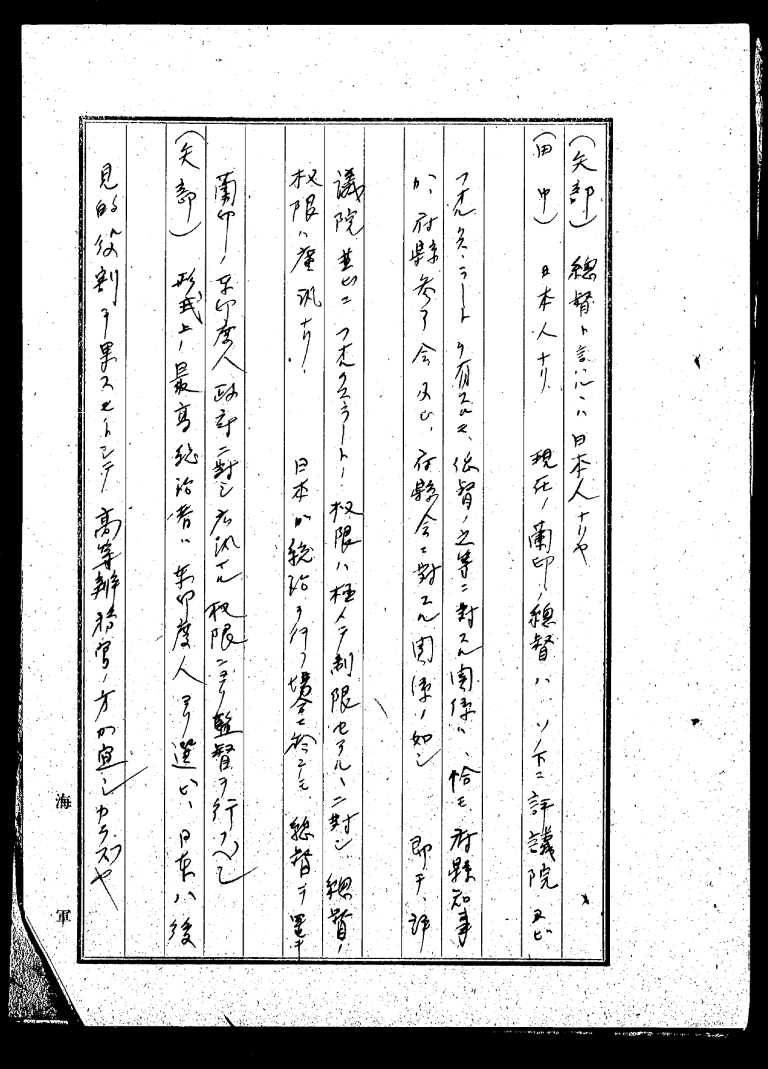 (矢部) 總督ト言ハルハ日本人ナリヤ
(田中) 日本人ナリ 現在ノ蘭印ノ總督ハ、ソノ下ニ評議院及ビ
フオルクスラートヲ有スルモ、總督ノ之等ニ對スル関係ハ、恰モ府縣知事
ガ、府縣参事会及ビ、府縣会ニ對スル関係ノ如シ 即チ、評
議院並ビニフオルクスラートノ権限ハ極メテ制限セラルヽニ對シ、總督ノ
权限ハ廣汎ナリ 日本ガ統治ヲ行フ場合ニ於テモ、總督ヲ置キ
蘭印ノ東印度人政府ニ對シ広汎ナル权限ニヨリ監督ヲ行フベシ
(矢部) 形式上ノ最高統治者ハ東印度人ヨリ選ビ、日本ハ後
見的役割ヲ果スモトシテ高等辨務官ノ方ガ宜シカラズヤ
海軍